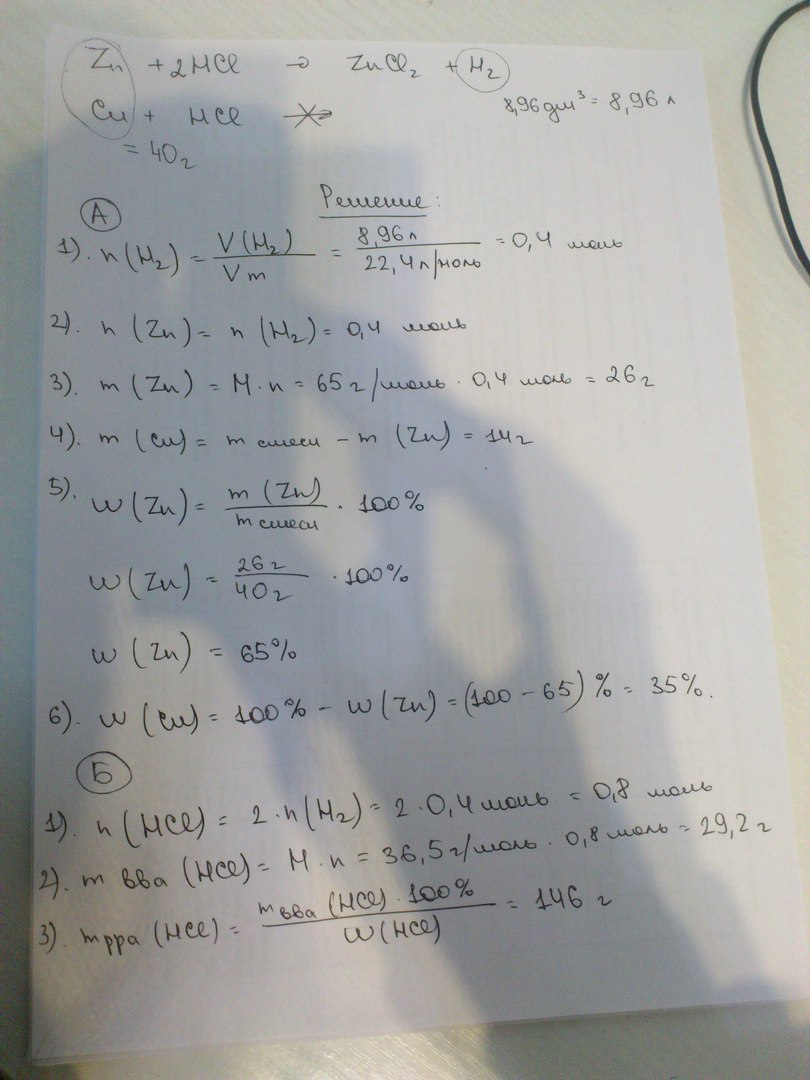 Zn + 2HCl → ZnCl₂ + H₂
Cu + HCl ↛
8,96 дм³ = 8,96 л
= 40 г
Решение:
А
1). n (H₂) = V(H₂) / Vm = 8,96 л / 22,4 л/моль = 0,4 моль
2). n (Zn) = n (H₂) = 0,4 моль
3). m (Zn) = M · n = 65 г/моль · 0,4 моль = 26 г
4). m (Cu) = m смеси − m (Zn) = 14 г
5). w (Zn) = m (Zn) / m смеси · 100%
w (Zn) = 26 г / 40 г · 100%
w (Zn) = 65%
6). w (Cu) = 100% − w (Zn) = (100 − 65) % = 35%.
Б
1). n (HCl) = 2 · n (H₂) = 2 · 0,4 моль = 0,8 моль
2). m вва (HCl) = M · n = 36,5 г/моль · 0,8 моль = 29,2 г
3). mрра (HCl) = m вва (HCl) · 100% / w (HCl) = 146 г